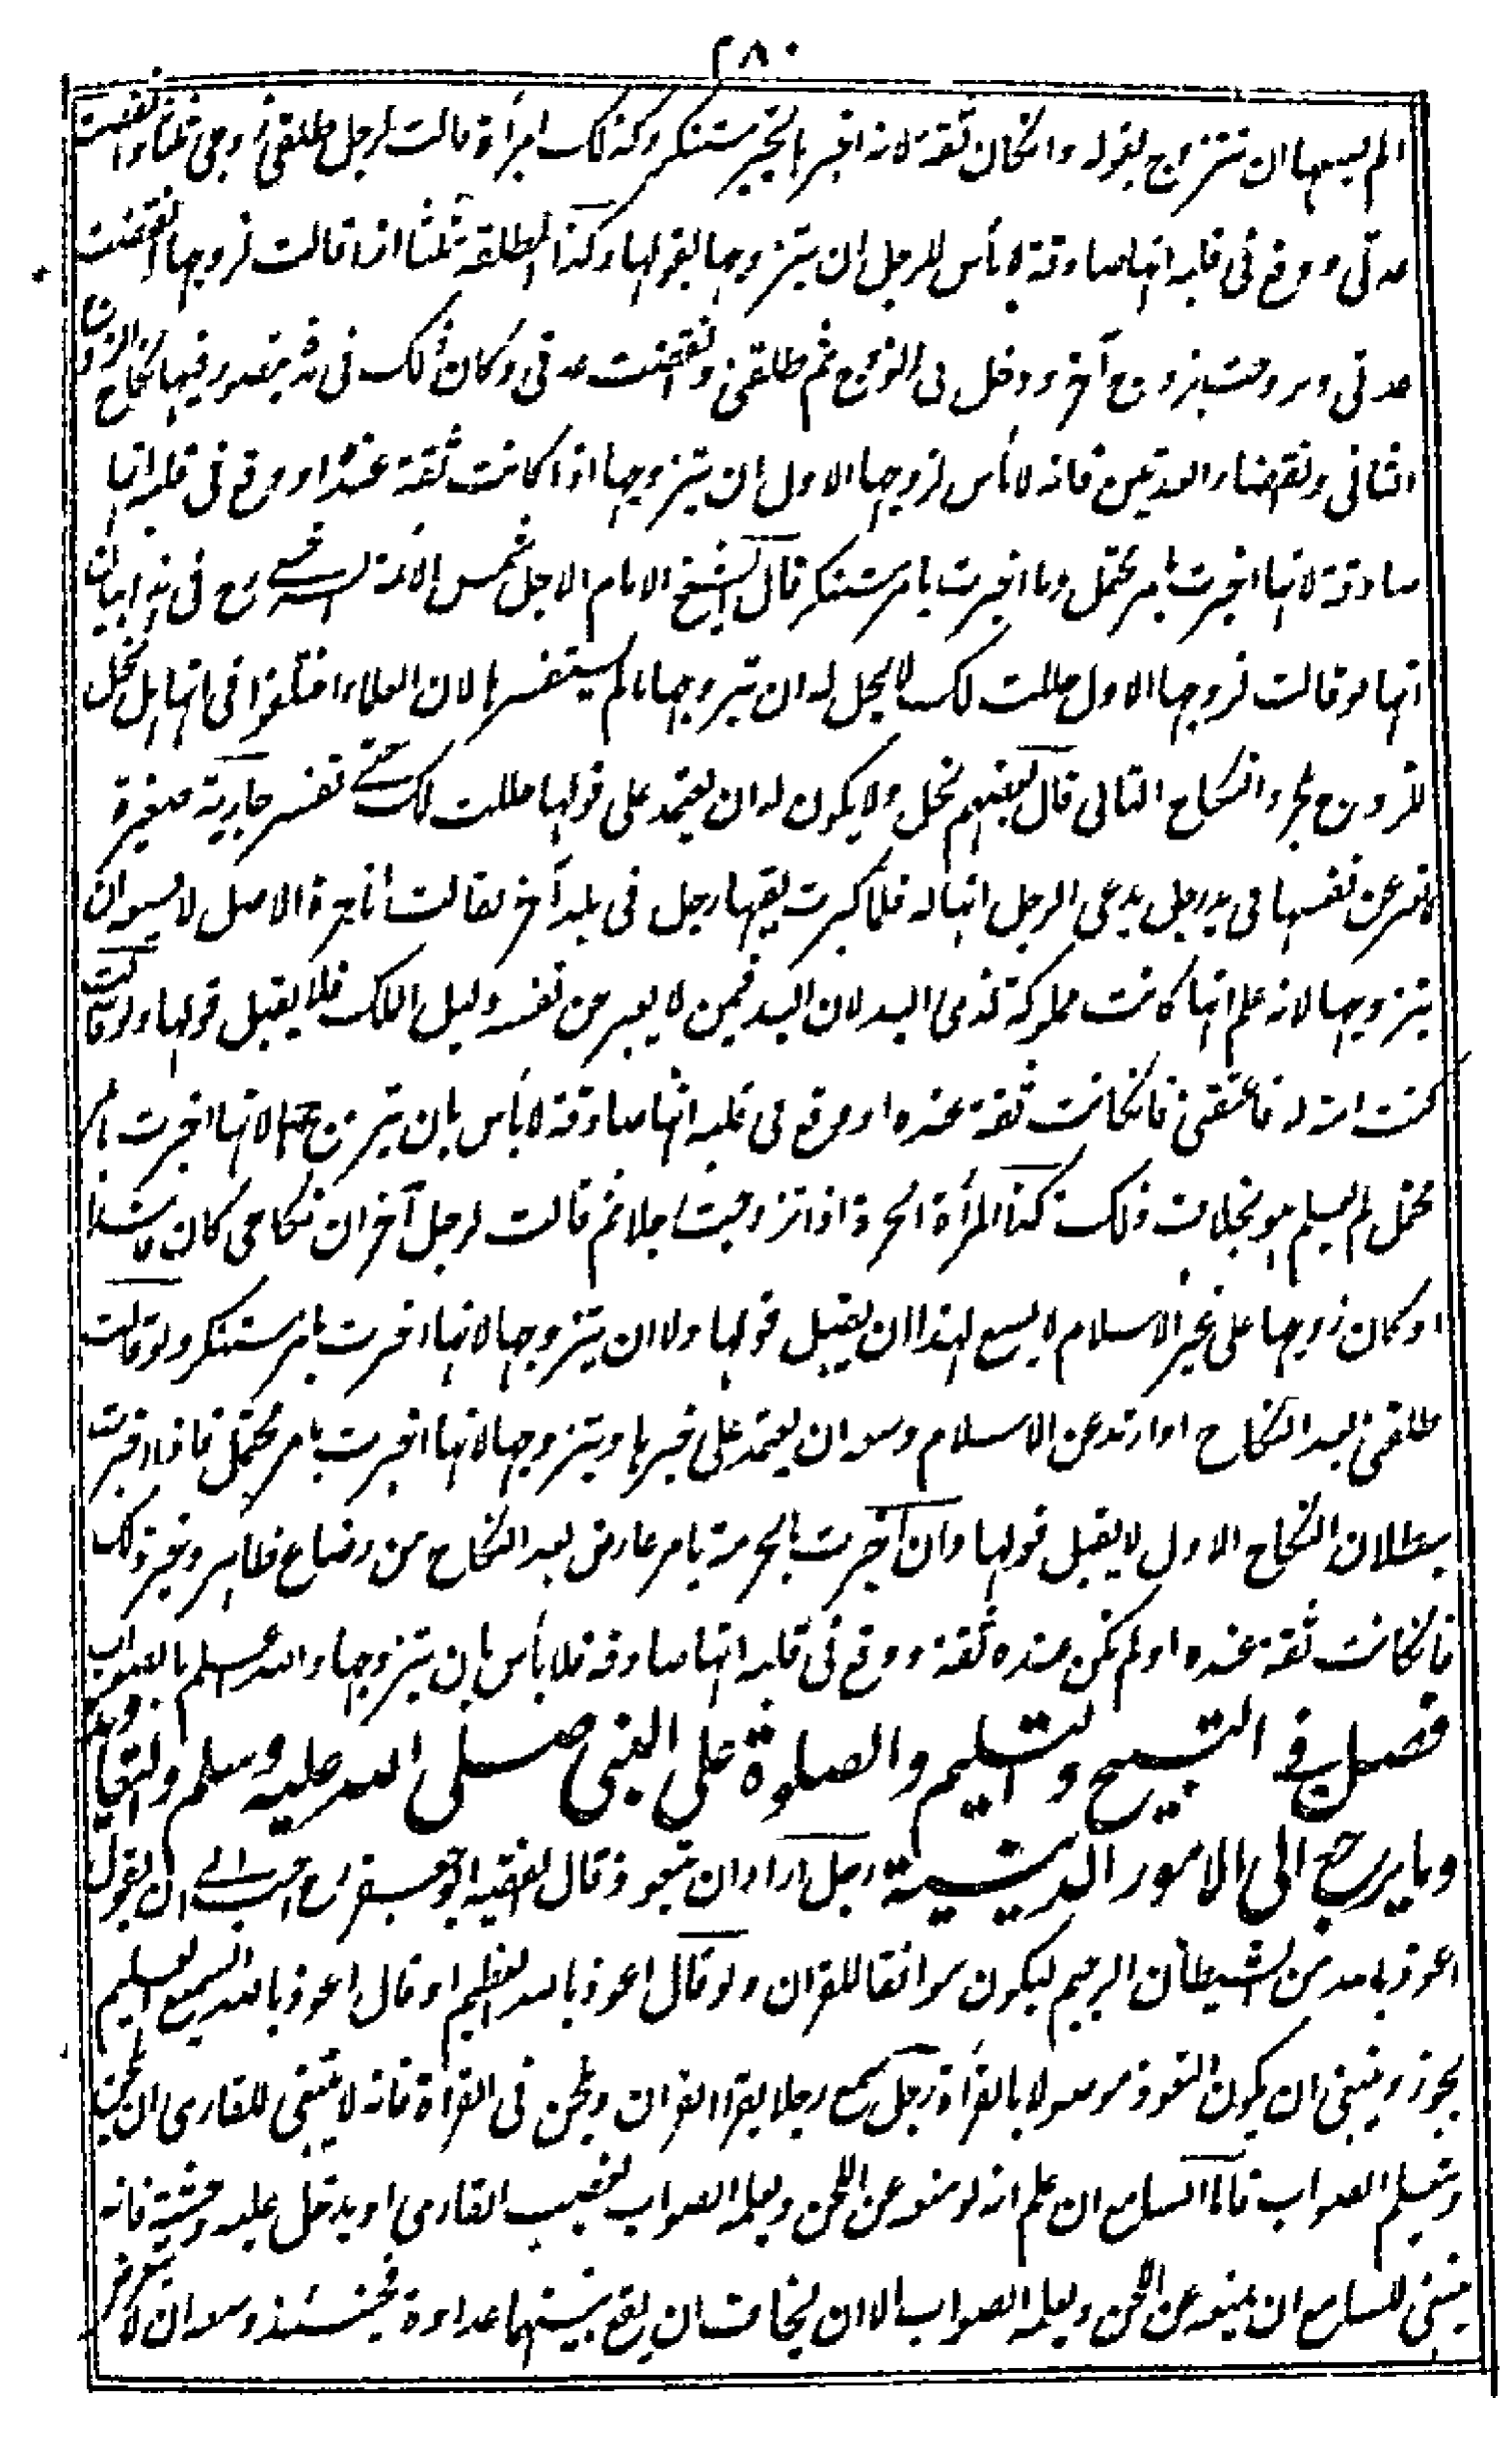 ٢٨٠
لم يسعها ان تتزوج بقوله وانكان ثقة لانه اخبر بالخبر مستنكر وكذلك امرأة قالت لرجل طلقني زوجي ثلثا وانقضت
عدتي ووقع في قلبه انها صادقة لا بأس للرجل ان يتزوجها بقولها وكذا المطلقة ثلثا اذا قالت لزوجها انقضت
عدتي وتزوجت بزوج آخر ودخل بي الزوج ثم طلقني وانقضت عدتي وكان ذلك في مدة يتصور فيها نكاح الزوج
الثاني وانقضاء العدتين فانه لا بأس لزوجها الاول ان يتزوجها اذا كانت ثقة عنده او وقع في قلبه انها
صادقة لانها اخبرت بامر محتمل وما اخبرت بامر مستنكر قال الشيخ الامام الاجل شمس الائمة السرخسي رح في هذا بيان
انها لو قالت لزوجها الاول حللت لك لا يحل له ان يتزوجها ما لم يستفسرها لان العلماء اختلفوا في انها هل تحل
للزوج بمجرد النكاح الثاني قال بعضهم تحل ولا يكون له ان يعتمد على قولها حللت لك حتى تفسر جارية صغيرة
لا تعبر عن نفسها في يد رجل يدعي الرجل انها له فلما كبرت لقيها رجل في بلد آخر فقالت انا حرة الاصل لا يسعه ان
يتزوجها لانه علم انها كانت مملوكة لذي اليد لان اليد فيمن لا يعبر عن نفسه دليل الملك فلا يقبل قولها ولو قالت
كنت امة له فاعتقني فانكانت ثقة عنده او وقع في قلبه انها صادقة لا بأس بان يتزوجها لانها اخبرت بامر
محتمل لم يعلم هو بخلاف ذلك وكذا المرأة الحرة اذا تزوجت رجلا ثم قالت لرجل آخر ان نكاحي كان فاسدا
او كان زوجها على غير الاسلام لا يسع لهذا ان يقبل قولها ولا ان يتزوجها لانها اخبرت بامر مستنكر ولو قالت
طلقني بعد النكاح او ارتد عن الاسلام وسعه ان يعتمد على خبرها ويتزوجها لانها اخبرت بامر محتمل فاذا اخبرت
ببطلان النكاح الاول لا يقبل قولها وان اخبرت بالحرمة بامر عارض بعد النكاح من رضاع طاهر وغير ذلك
فانكانت ثقة عنده او لم تكن عنده ثقة ووقع في قلبه انها صادقة فلا بأس بان يتزوجها والله اعلم بالصواب
فصل في التسبيح والتسليم والصلوة على النبي صلى الله عليه وسلم والتعليم
وما يرجع الى الامور الدينية رجل اراد ان يتعوذ قال الفقيه ابو جعفر رح احب الي ان يقول
اعوذ بالله من الشيطان الرجيم ليكون موافقا للقران ولو قال اعوذ بالله العظيم او قال اعوذ بالله السميع العليم
يجوز وينبغي ان يكون التعوذ موصولا بالقرأة رجل سمع رجلا يقرأ القران ويلحن في القرأة فانه لا ينبغي للقارى ان يلحن
ويتعلم الصواب فاما السامع ان علم انه لو منعه عن اللحن ويعلمه الصواب يغضب القارى او يدخل عليه وحشة فانه
ينبغي للسامع ان يمنعه عن اللحن ويعلمه الصواب الا ان يخاف ان يقع بينهما عداوة فحينئذ وسعه ان لا